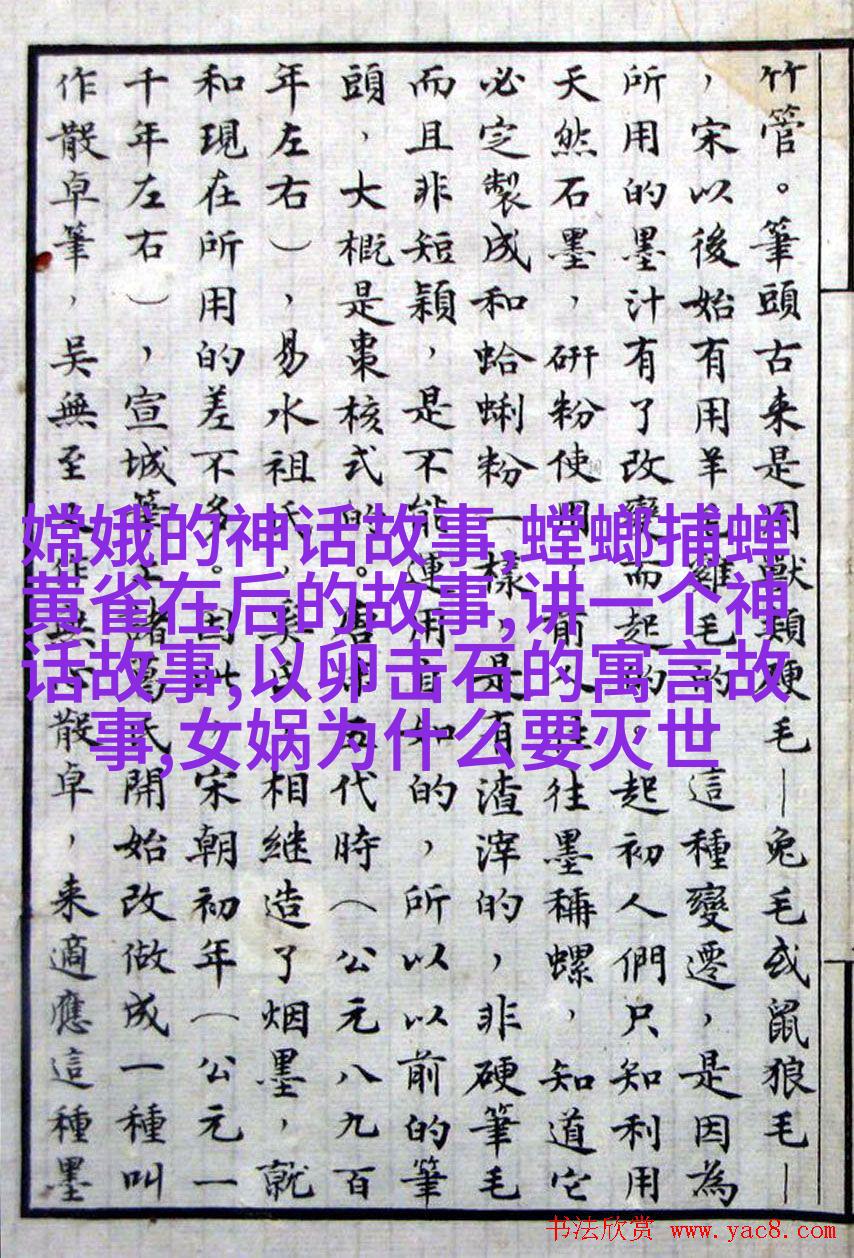 竹管。筆頭古来是用獸類硬毛—兔毛或鼠狼毛—
，宋以後始有用羊毛雞毛的。這種變遷，是因為
所用的墨汁有了改變而起的。起初人們只知利用
天然石墨，研粉使用，前人往往墨稱螺，知道它
必定製成和蛤蜊粉一樣，是有渣滓的，非硬筆毛
而且非短穎，是不能運用自如的，所以以前的筆
頭，大概是棗核式的。唐末五代時（公元八九百
年左右），易水祖氏、奚氏，相継造了烟墨，就
和現在所用的差不多。因此，宋朝初年（公元一
千年左右），宣城筆工諸葛氏開始改做成一種叫
作散卓筆，吳無至又作無心散卓，来適應這種墨
嫦娥的神话故事,螳螂捕蝉
黄雀在后的故事,讲一个神
话故事,以卵击石的寓言故
事,女娲为什么要灭世
书法欣赏 www.yac8.com